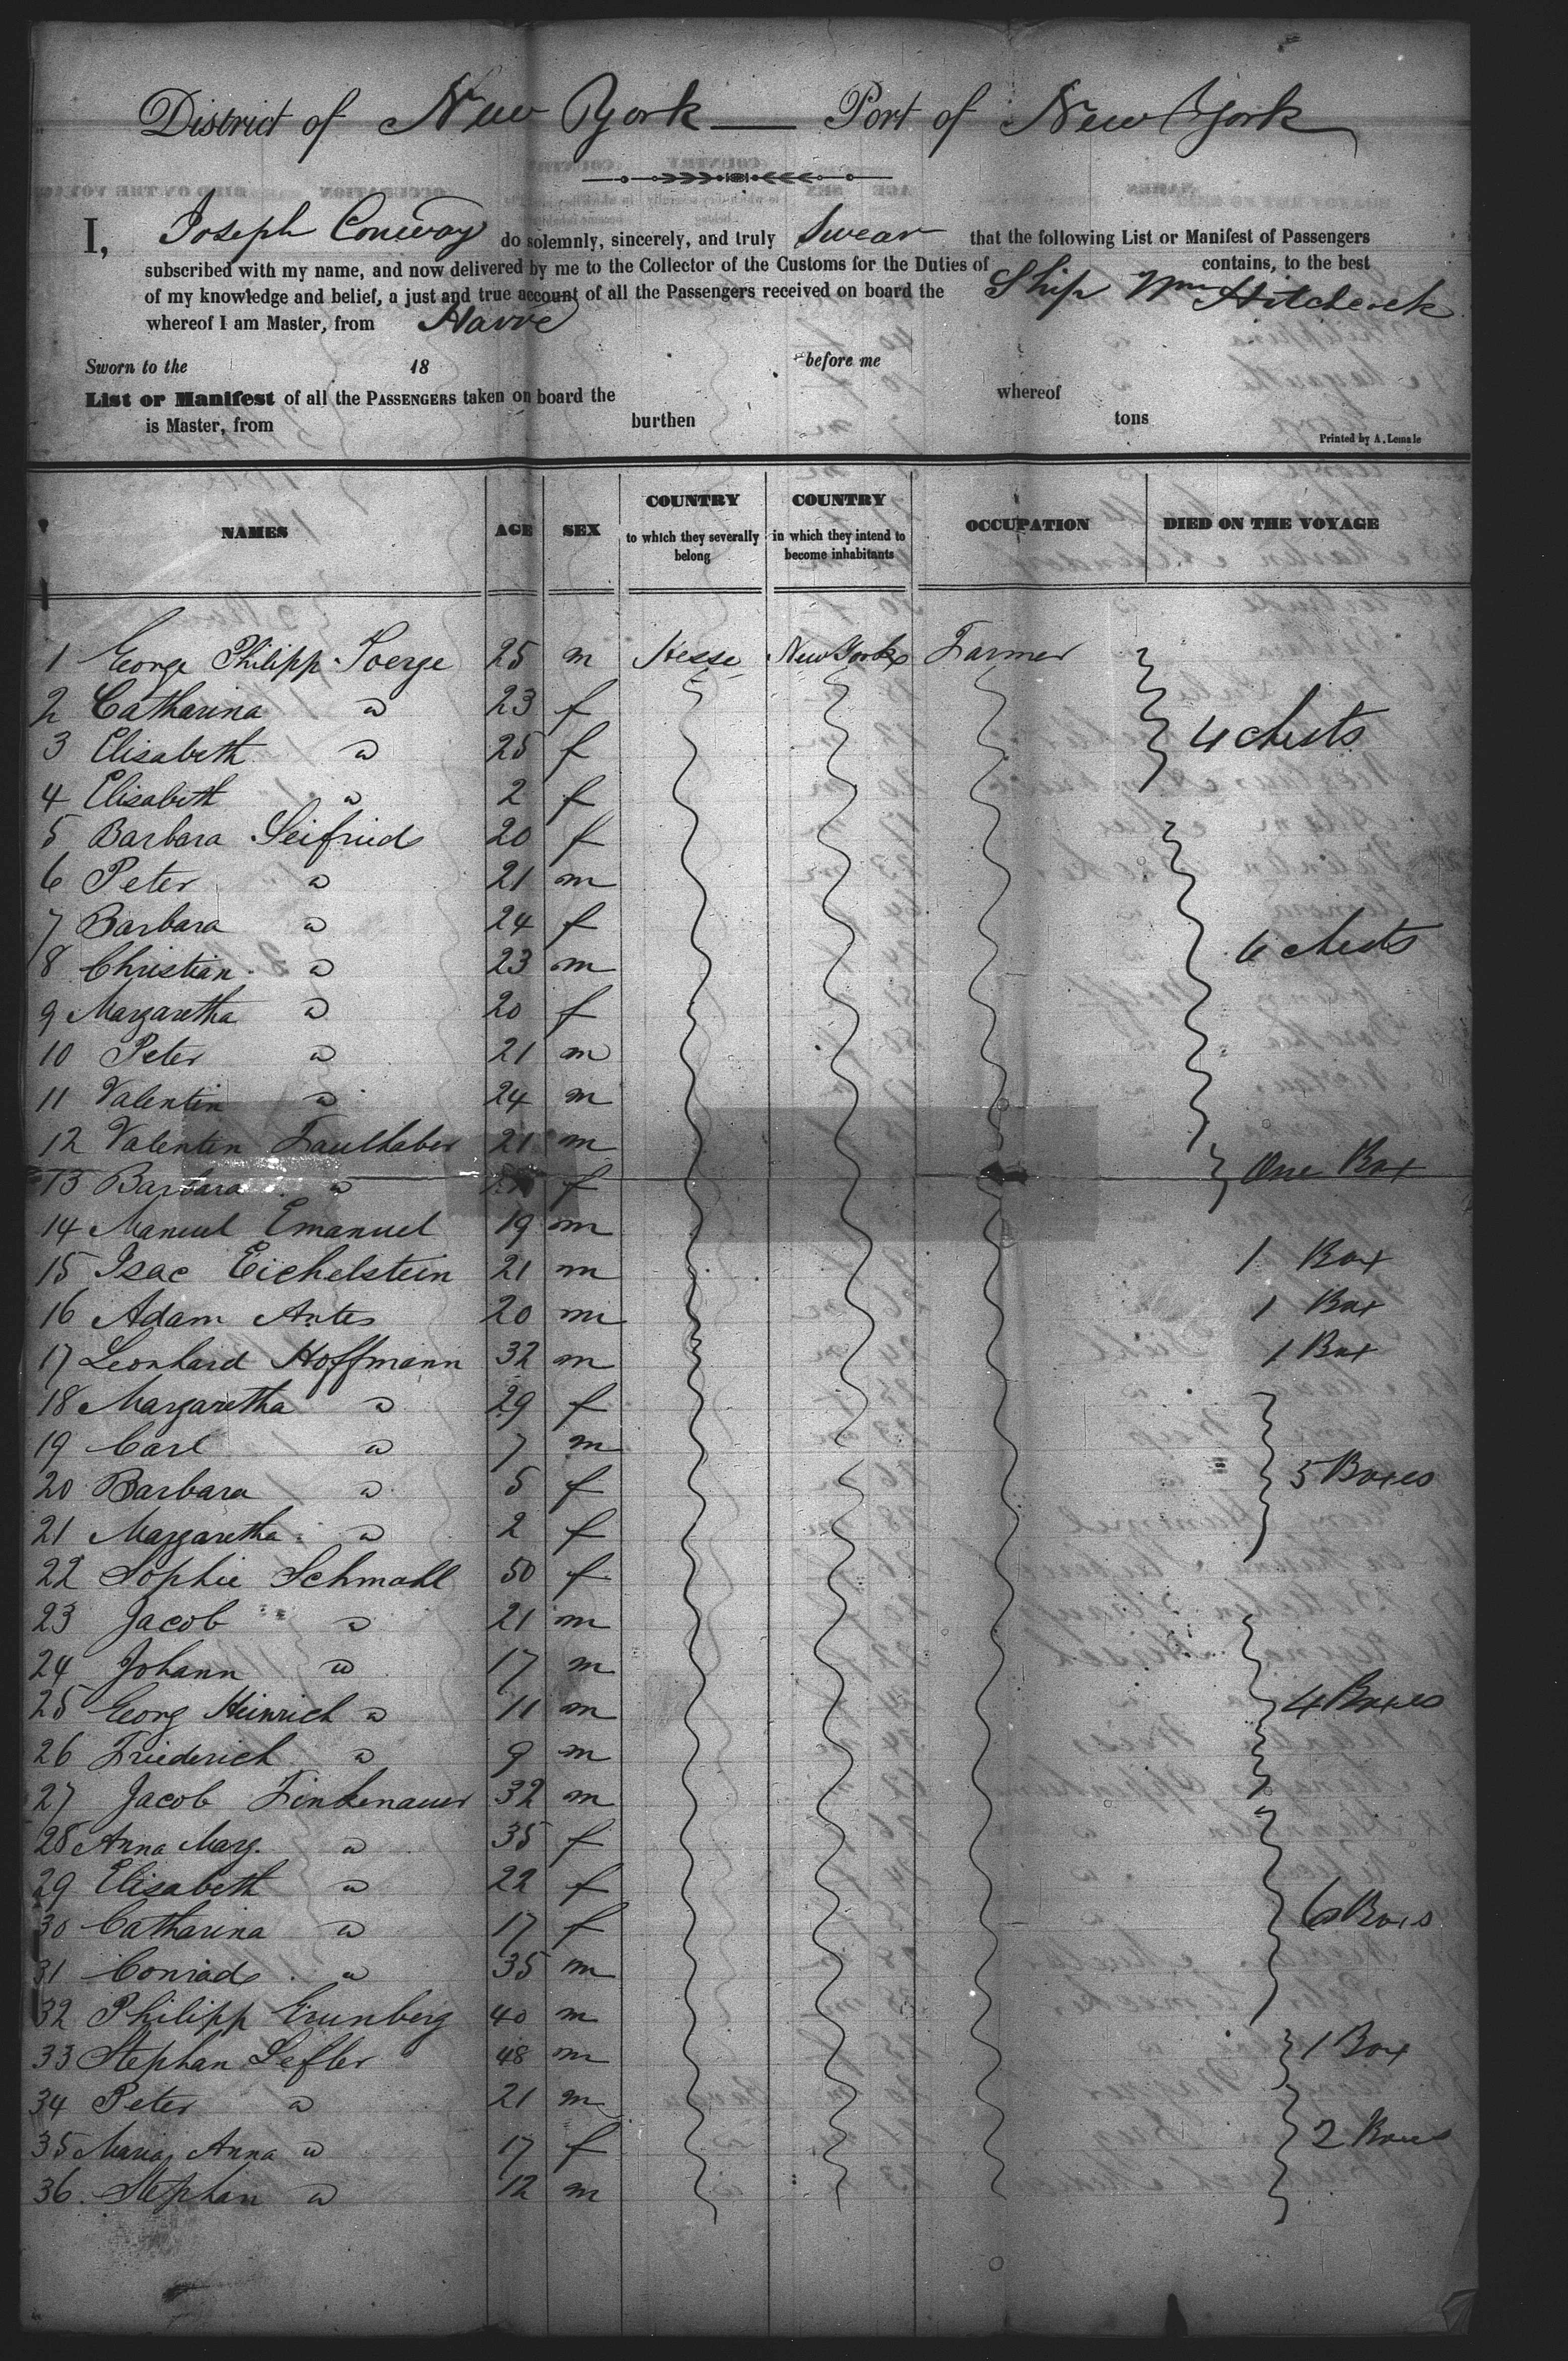 District of New York — Port of New York
I, Joseph Conway do solemnly, sincerely, and truly Swear that the following List or Manifest of Passengers
subscribed with my name, and now delivered by me to the Collector of the Customs for the Duties of contains, to the best
of my knowledge and belief, a just and true account of all the Passengers received on board the Ship Wm Hitchcock
whereof I am Master, from Havre
Sworn to the 18 before me
List or Manifest of all the PASSENGERS taken on board the whereof
is Master, from burthen tons
Printed by A. Lemale
NAMES AGE SEX COUNTRY to which they severally belong COUNTRY in which they intend to become inhabitants OCCUPATION DIED ON THE VOYAGE
1 George Philipp Soerge 25 m Hesse New York Farmer
2 Catharina " 23 f
3 Elisabeth " 25 f 4 chests
4 Elisabeth " 2 f
5 Barbara Seifried 20 f
6 Peter " 21 m
7 Barbara " 24 f
8 Christian " 23 m 6 chests
9 Margaretha " 20 f
10 Peter " 21 m
11 Valentin " 24 m
12 Valentin Faulhaber 21 m
13 Barbara " f One Box
14 Manuel Emanuel 19 m
15 Isac Eichelstein 21 m 1 Box
16 Adam Antes 20 m 1 Box
17 Leonhard Hoffmann 32 m 1 Box
18 Margaretha " 29 f
19 Carl " 7 m
20 Barbara " 5 f 5 Boxes
21 Margaretha " 2 f
22 Sophie Schmahl 50 f
23 Jacob " 21 m
24 Johann " 17 m
25 Georg Heinrich " 11 m 4 Boxes
26 Friederich " 9 m
27 Jacob Finkenauer 32 m
28 Anna Marg. " 35 f
29 Elisabeth " 22 f
30 Catharina " 17 f 6 Boxes
31 Conrad " 35 m
32 Philipp Grunberg 40 m
33 Stephan Lefler 48 m 1 Box
34 Peter " 21 m
35 Maria Anna " 17 f 2 Boxes
36 Stephan " 12 m